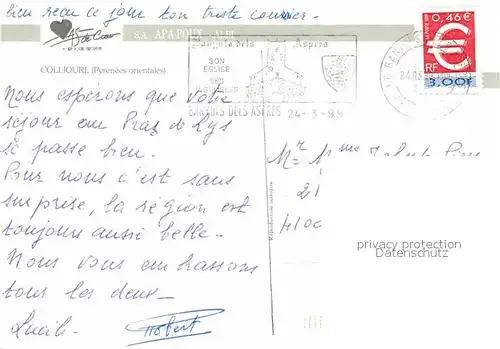 bien reçu ce jour ton triste courrier.
S.A. APA-POUX - ALBI
COLLIOURE (Pyrenées orientales)
Banyuls dels Aspres
SON
EGLISE
SES
BANYULS DELS ASPRES 24-3-99
0,46 €
RF
3,00F
Nous esperons que votre
séjour au Praz de Lys
se passe bien.
Pour nous c'est sans
surprise, la région est
toujours aussi belle.
Nous vous embrassons
tous les deux-
Lucile- Robert
Mr Mme
21
privacy protection
Datenschutz